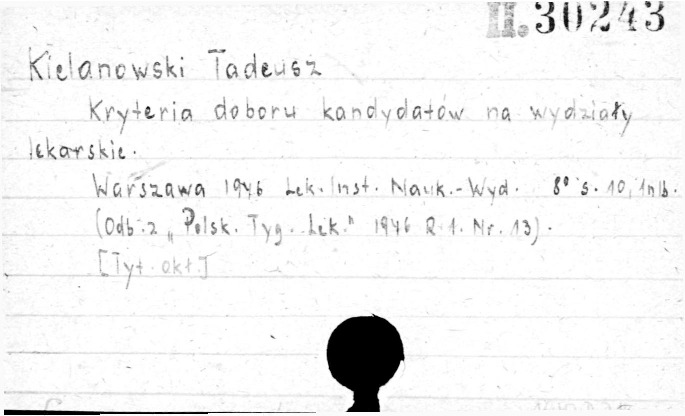 II.30243
Kielanowski Tadeusz
Kryteria doboru kandydatów na wydziały
lekarskie.
Warszawa 1946 Lek. Inst. Nauk.-Wyd. 8° s. 10, 1nlb.
(Odb. z „Polsk. Tyg. Lek." 1946 R. 1. Nr. 13).
[Tyt. okł.]